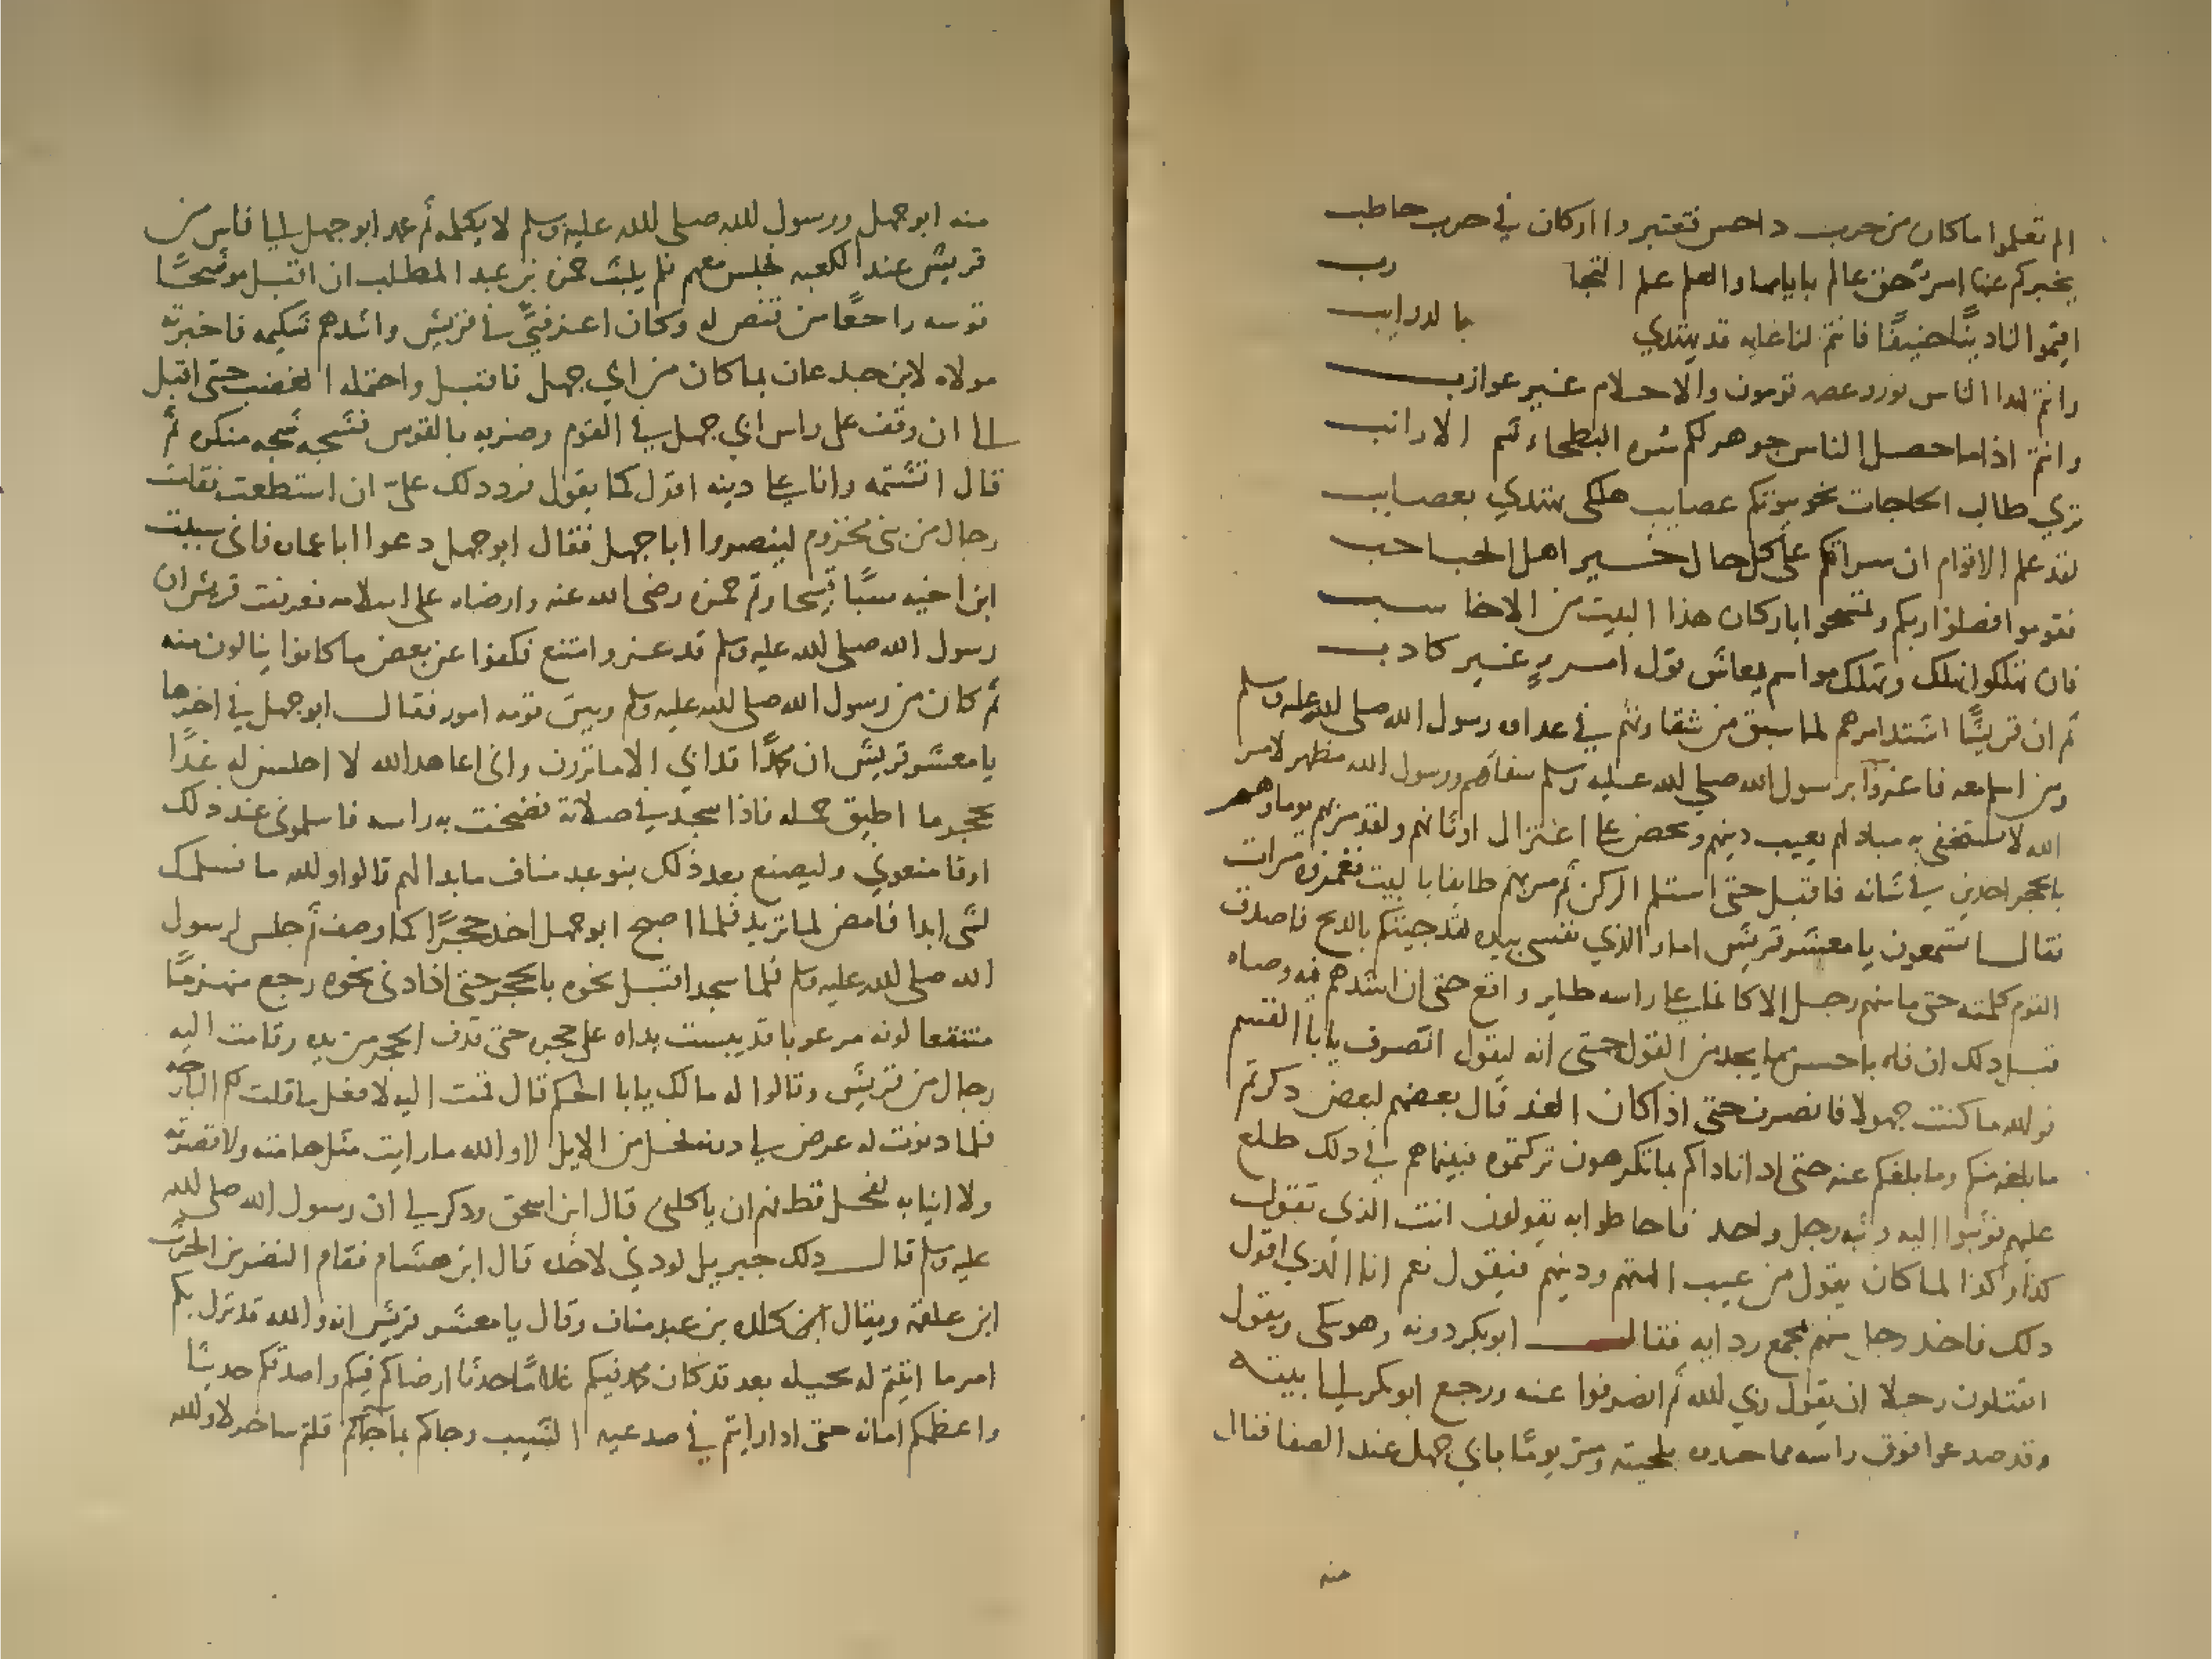 الم تعلموا ماكان من حرب داحس فتعتبروا اوكان في حرب حاطب
يخبركم عنها امرؤ حق عالم باياهما والعلم علم التجا رب
اقيموا لنا دينًا حنيفًا فانتم لنا غايه قد يهتدي بالدوايب
وانتم لهدا الناس نور وعصمه تومون والاحلام غير عوازب
وانتم اذا ما حصل الناس جوهر لكم سره البطحاء شم الارانب
تري طالب الحاجات نحو بيوتكم عصايب هلكى تهتدي بعصايب
لقد علم الاقوام ان سراتكم على كل حال خير اهل الجباجب
فقوموا فصلوا ربكم وتمسحوا باركان هذا البيت من الاخا سب
فان تهلكوا نهلك وتهلك مواسم يعاش قول امرء غير كاذب
ثم ان قريشًا اشتد امرهم لما سبق من شقاوتهم في عداوه رسول الله صلى الله عليه وسلم
ومن اسلم معه فاغروا برسول الله صلى الله عليه وسلم سفاهم ورسول الله مظهر لامر
الله لا يستخفي به مباد لهم بعيب دينهم ومحض على اعتزال اوثانهم ولقد مر بهم يوما وهم
بالحجر اخذين في شانه فاقبل حتى استلم الركن ثم مر بهم طايفا بالبيت فغمزوه مرات
فقال اتسمعون يا معشر قريش اما والذي نفسي بيده لقد جيتكم بالذبح فاصدف
القوم كلمته حتى ما منهم رجل الا كانما على راسه طاير واقع حتى ان اشدهم فيه وصاه
قبل ذلك ان فاه باحسن مما يجد من القول حتى انه ليقول انصرف يابا القسم
فوالله ما كنت جهولا فانصرف حتى اذا كان الغد قال بعضهم لبعض ذكرتم
ما بلغ منكم وما بلغكم عنه حتى اذا ناداكم بما تكرهون تركتموه فبينما هم في ذلك طلع
عليهم فوثبوا اليه وثبه رجل واحد فاحاطوا به يقولون انت الذي تقول
كذا وكذا لما كان يقول من عيب الهتهم ودينهم فيقول نعم انا الذي اقول
ذلك فاخذ رجل منهم بمجمع ردايه فقال ابو بكر دونه وهو يبكي ويقول
اتقتلون رجلا ان يقول ربي الله ثم انصرفوا عنه ورجع ابو بكر الى بيته
وقد صدعوا فوق راسه مما جذبوه بلحيته ومر يومًا بابي جهل عند الصفا فنال
منه
منه ابو جهل ورسول الله صلى الله عليه وسلم لا يكلمه ثم عمد ابو جهل الى ناس من
قريش عند الكعبه فجلس معهم فلم يلبث حمزه بن عبد المطلب ان اقبل موشحًا
قوسه راجعًا من قنص له وكان اعز فتى في قريش واشدهم شكيمه فاخبرته
مولاه لابن جدعان بما كان من ابي جهل فاقبل واحتمله الغضب حتى اقبل
الى ان وقف على راس ابي جهل في القوم وضربه بالقوس فشجه شجه منكره ثم
قال اتشتمه وانا على دينه اقول كما يقول فرد ذلك علي ان استطعت فقامت
رجال من بني مخزوم لينصروا ابا جهل فقال ابو جهل دعوا ابا عماره فاني سببت
ابن اخيه سبًا قبيحا وتم حمزه رضى الله عنه وارضاه على اسلامه فعرفت قريش ان
رسول الله صلى الله عليه وسلم قد عز وامتنع فكفوا عن بعض ما كانوا ينالون منه
ثم كان من رسول الله صلى الله عليه وسلم وبين قومه امور فقال ابو جهل في اخرها
يا معشر قريش ان محمدًا قد ابي الا ما ترون واني اعاهد الله لا اجلس له غدًا
بحجر ما اطيق حمله فاذا سجد في صلاته فضخت به راسه فاسلموني عند ذلك
او فامنعوني وليصنع بعد ذلك بنو عبد مناف ما بدا لهم قالوا والله ما نسلمك
لشى ابدا فامض لما تريد فلما اصبح ابو جهل اخذ حجرًا كما وصف ثم جلس لرسول
الله صلى الله عليه وسلم فلما سجد اقبل نحوه بالحجر حتى اذا دنى نحوه رجع منهزمًا
منتقعا لونه مرعوبا قد يبست يداه على حجره حتى قذف الحجر من يده وقامت اليه
رجال من قريش وقالوا له مالك يابا الحكم قال قمت اليه لافعل ما قلت لكم البارحه
فلما دنوت له عرض لي دونه فحل من الابل لا والله ما رايت مثل هامته ولا قصرته
ولا انيابه لفحل قط فهم ان ياكلني قال ابن اسحق وذكر لي ان رسول الله صلى الله
عليه وسلم قال ذلك جبريل لو دني لاخذه قال ابن هشام فقام النضر بن الحرث
ابن علقمه ويقال ابن كلده بن عبد مناف وقال يا معشر قريش انه والله قد نزل بكم
امر ما اتيتم له بحيله بعد قد كان محمد فيكم غلامًا حدثا ارضاكم فيكم واصدقكم حديثًا
واعظمكم امانه حتى اذا رايتم في صدغيه الشيب وجاكم بما جاكم قلتم ساحر لا والله